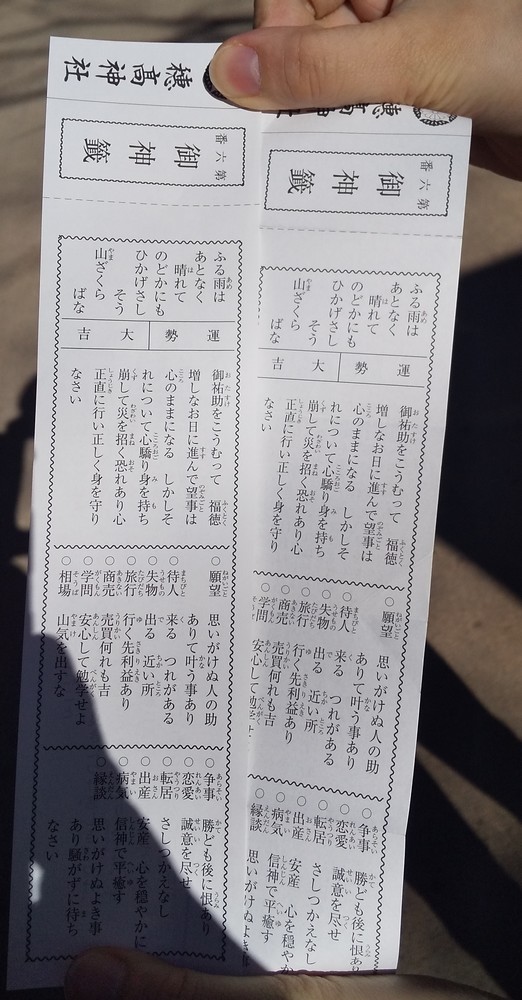 穂高神社
第六番
御神籤
ふる雨は
あとなく
晴れて
のどかにも
ひかげさし
そう
山ざくら
ばな
運勢
大吉
御祐助をこうむって 福徳
増しなお日に進んで望事は
心のままになる しかしそ
れについて心驕り身を持ち
崩して災を招く恐れあり心
正直に行い正しく身を守り
なさい
○願望 思いがけぬ人の助
ありて叶う事あり
○待人 来る つれがある
○失物 出る 近い所
○旅行 行く先利益あり
○商売 売買何れも吉
○学問 安心して勉学せ
○争事 勝ども後に恨あり
○恋愛 誠意を尽せ
○転居 さしつかえなし
○出産 安産 心を穏やか
○病気 信神で平癒す
○縁談 思いがけぬよき事
穂高神社
第六番
御神籤
ふる雨は
あとなく
晴れて
のどかにも
ひかげさし
そう
山ざくら
ばな
運勢
大吉
御祐助をこうむって 福徳
増しなお日に進んで望事は
心のままになる しかしそ
れについて心驕り身を持ち
崩して災を招く恐れあり心
正直に行い正しく身を守り
なさい
○願望 思いがけぬ人の助
ありて叶う事あり
○待人 来る つれがある
○失物 出る 近い所
○旅行 行く先利益あり
○商売 売買何れも吉
○学問 安心して勉学せよ
○相場 山気を出すな
○争事 勝ども後に恨あり
○恋愛 誠意を尽せ
○転居 さしつかえなし
○出産 安産 心を穏やかに
○病気 信神で平癒す
○縁談 思いがけぬよき事
あり騒がずに待ち
なさい